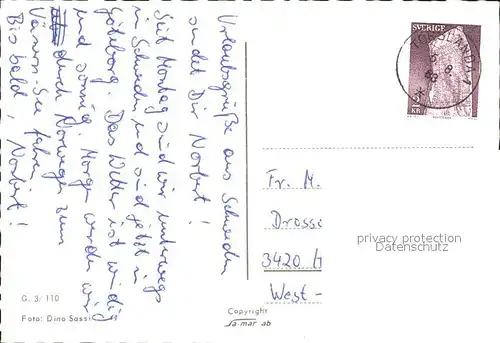 Urlaubsgrüße aus Schweden
sendet Dir Norbert!
Seit Montag sind wir unterwegs
in Schweden und sind jetzt in
Göteborg. Das Wetter ist windig
und sonnig. Morgen werden wir
durch Norwegen zum
fahren.
Bis bald! Norbert!
SVERIGE
TORSLANDA 1
Fr. M.
Drosse
3420 /1
West -
privacy protection
Datenschutz
G. 3/110
Foto: Dino Sassi
Copyright
sa-mar ab